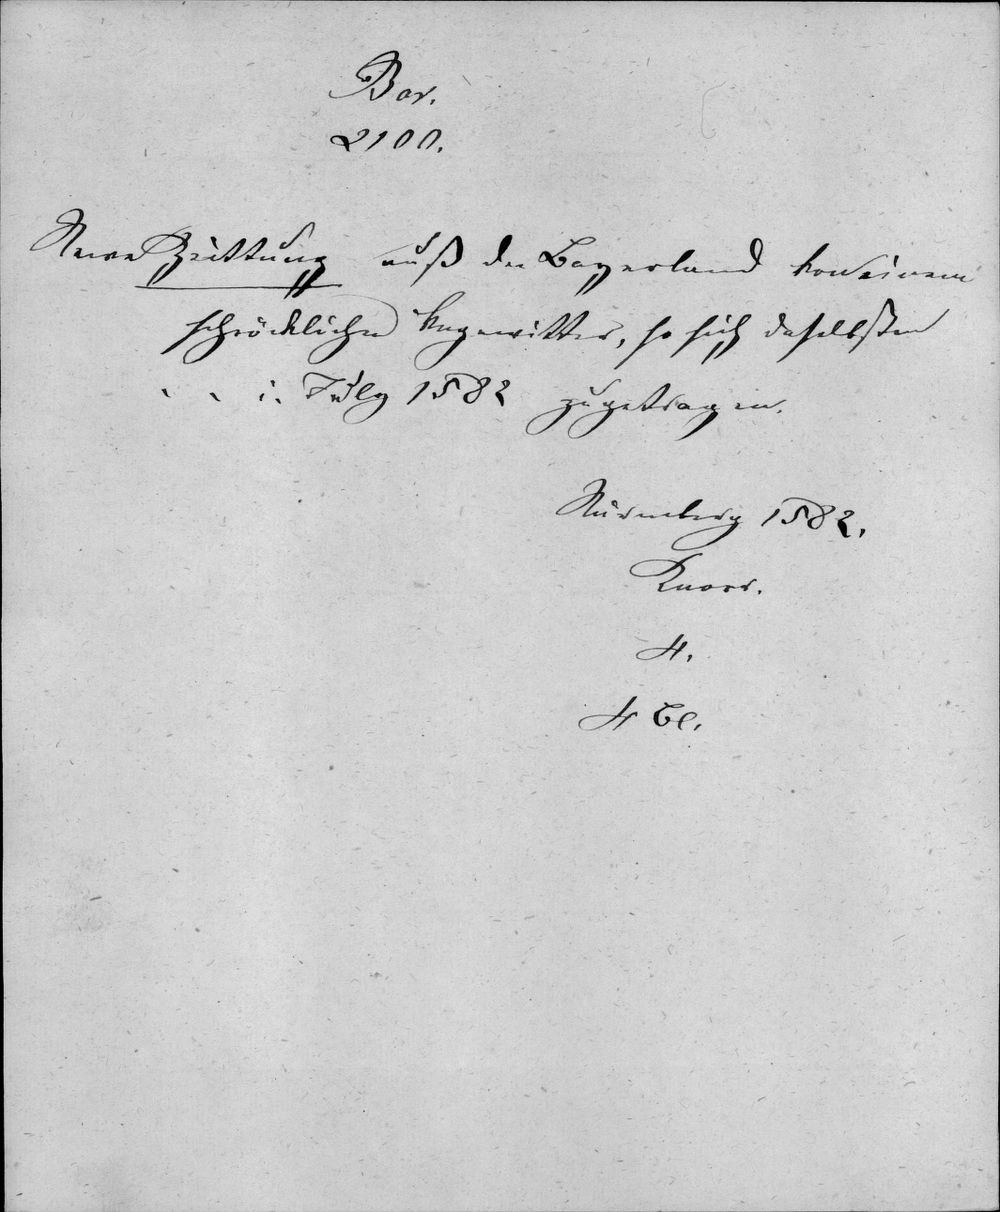 Bav.
2100.
Newe Zeittung auß der Bayerland von einem
schröcklichen Vngewitter, so sich daselbsten
. . i. July 1582 zugetragen.
Nürmberg 1582.
Knorr.
4.
4 Bl.